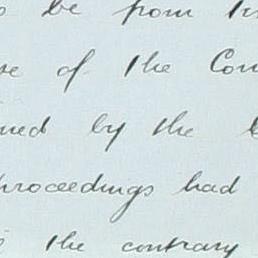 be from
of the Con
by the
proceedings had
the contrary